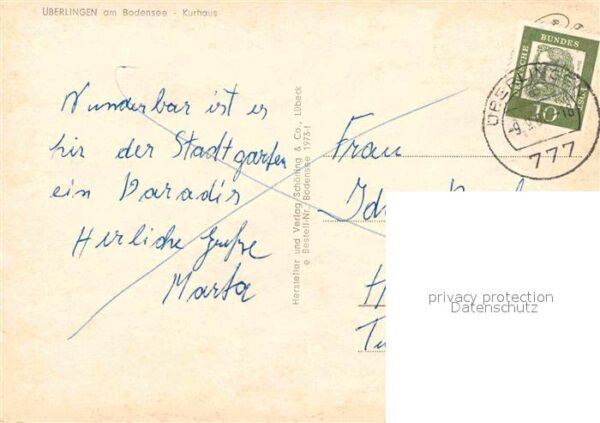 ÜBERLINGEN am Bodensee - Kurhaus
Wunderbar ist es
hir der Stadtgarten
ein Paradis
Herliche Grüße
Marta
Hersteller und Verlag Schöning & Co., Lübeck
Bestell-Nr. Bodensee 1973-I
Frau
DEUTSCHE BUNDESPOST
10
777
privacy protection
Datenschutz